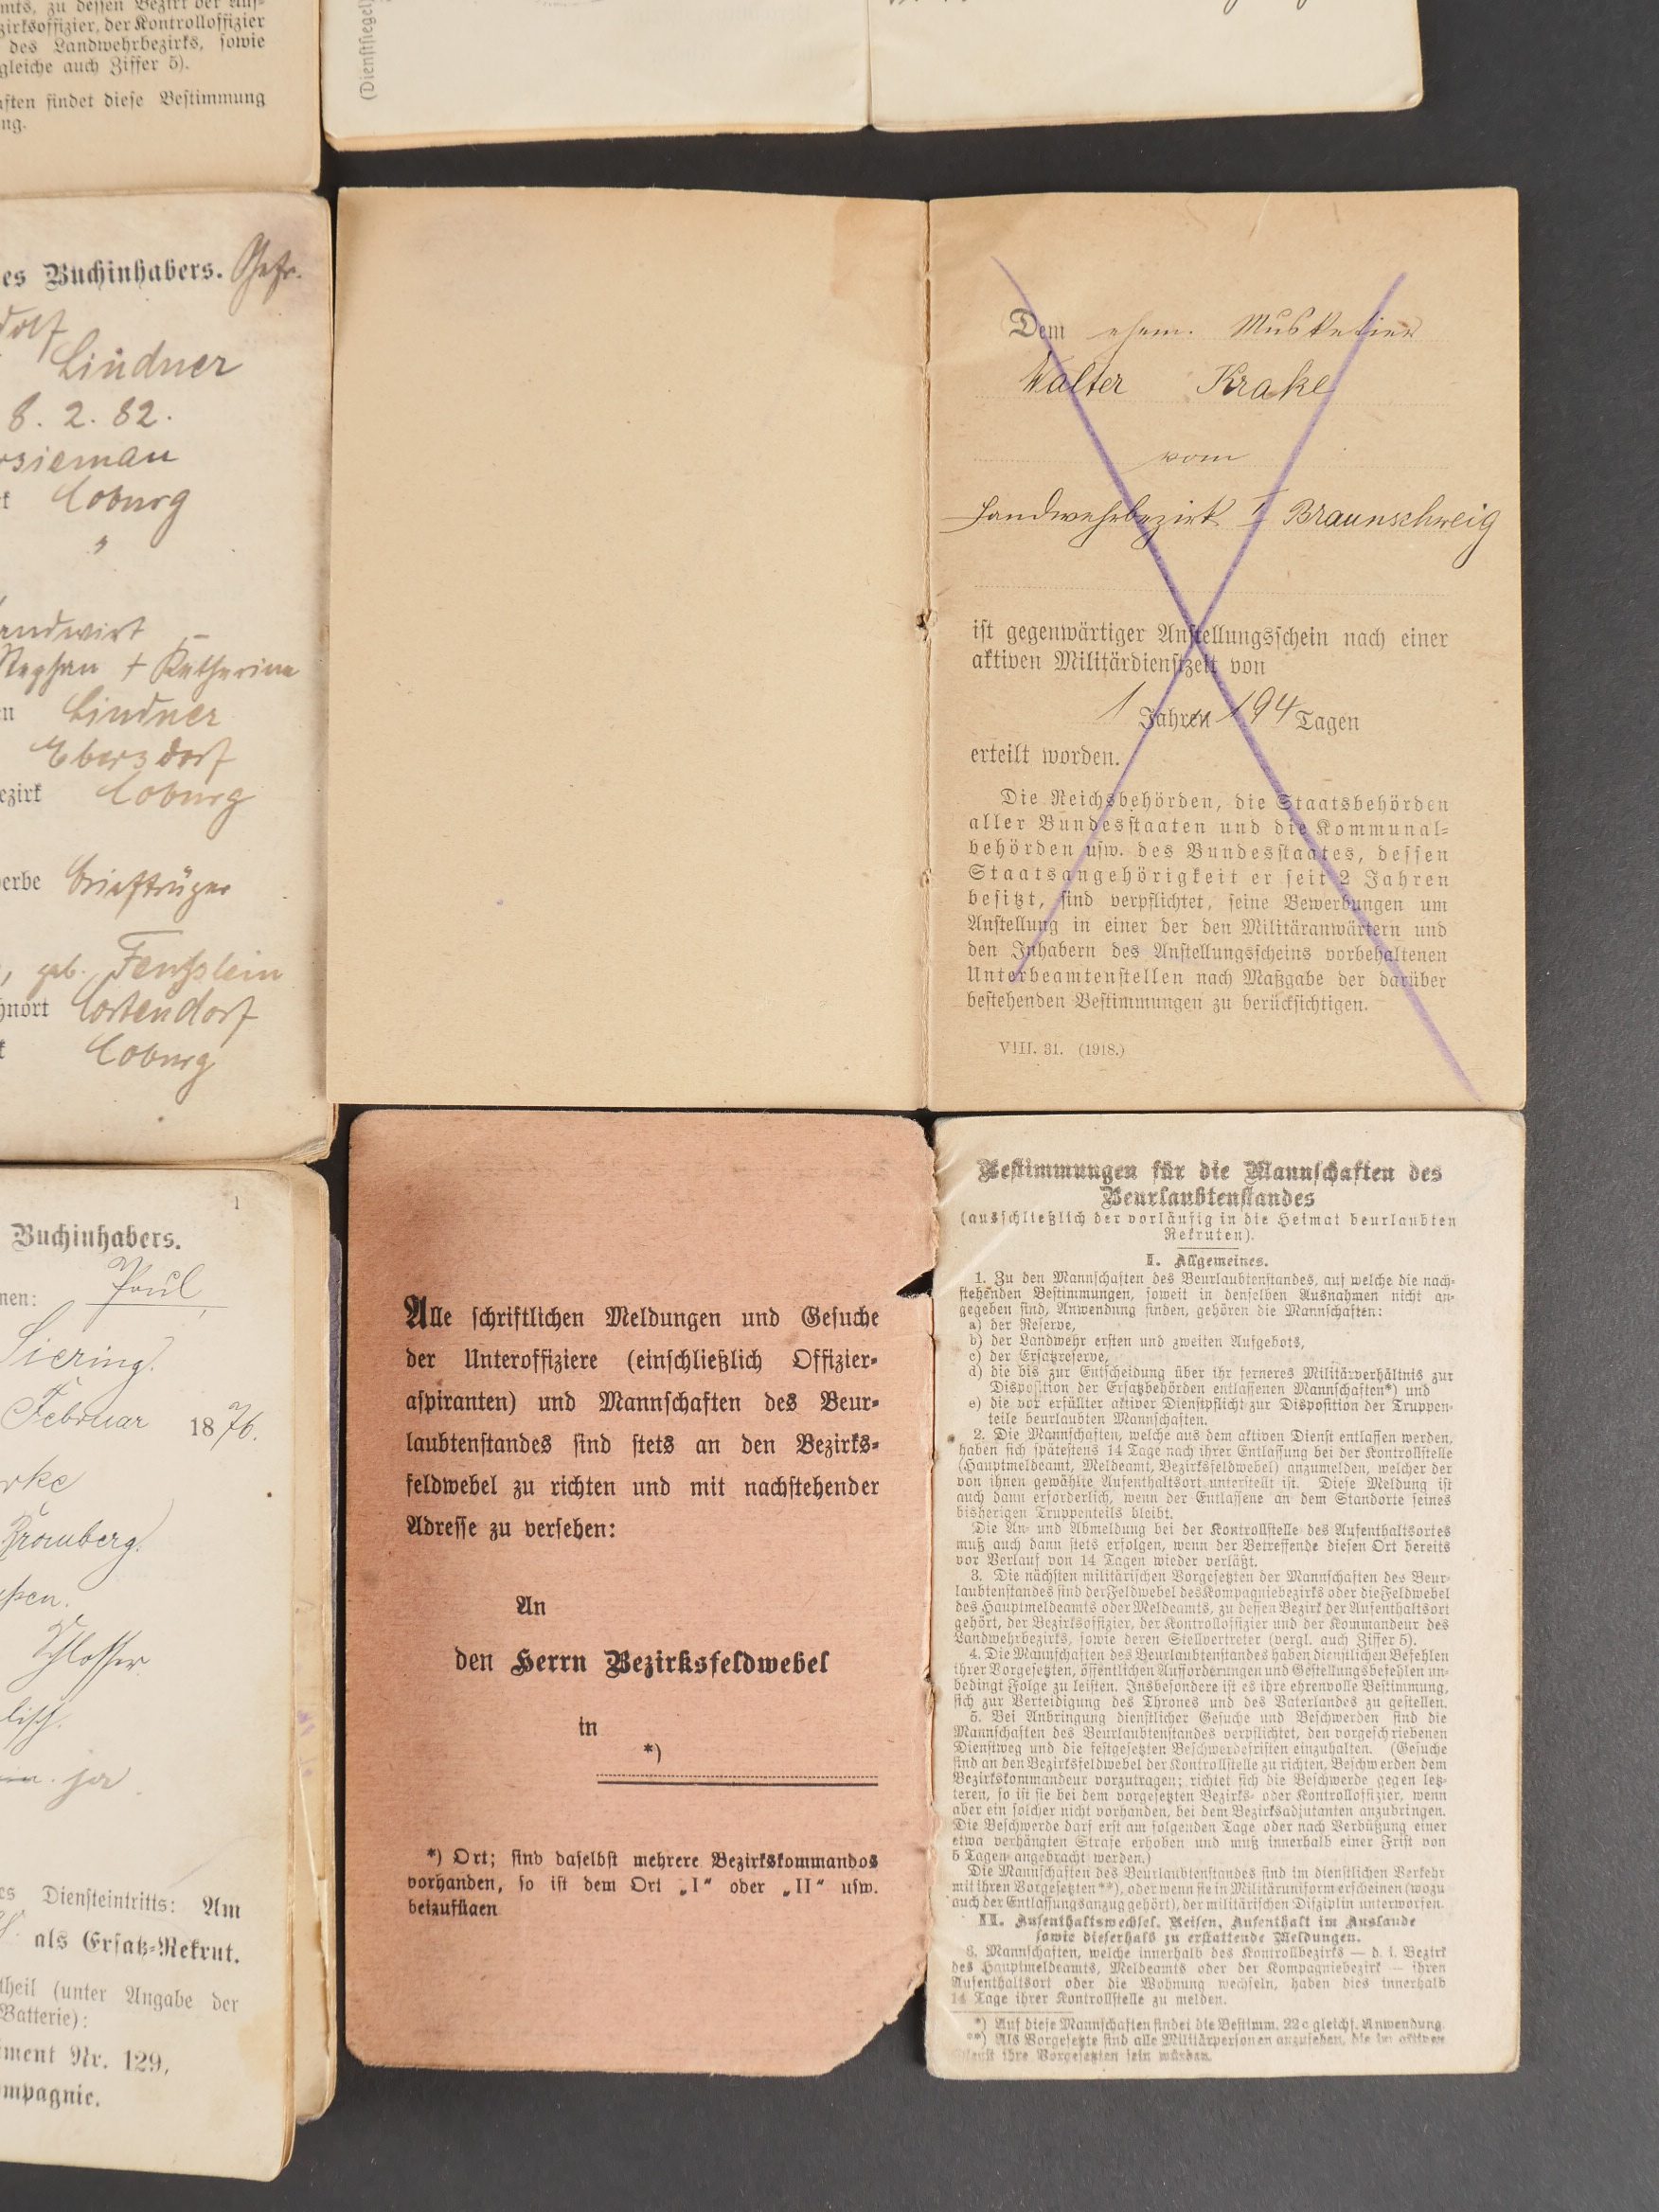 mts, zu dessen Bezirk der Auf-
zirksoffizier, der Kontrolloffizier
des Landwehrbezirks, sowie
gleiche auch Ziffer 5).
ften findet diese Bestimmung
ng.
(Dienstsiegel)
es Buchinhabers. Gefr.
dolf
Lindner
8. 2. 82.
Coburg
"
andwirt
Stephan + Katharina
en Lindner
Ebersdorf
ezirk Coburg
erbe Briefträger
, geb.
hnort Cortendorf
Coburg
Dem ehem. Musketier
Walter Krake
vom
Landwehrbezirk I Braunschweig
ist gegenwärtiger Anstellungsschein nach einer
aktiven Militärdienstzeit von
1 Jahren 194 Tagen
erteilt worden.
Die Reichsbehörden, die Staatsbehörden
aller Bundesstaaten und die Kommunal-
behörden usw. des Bundesstaates, dessen
Staatsangehörigkeit er seit 2 Jahren
besitzt, sind verpflichtet, seine Bewerbungen um
Anstellung in einer der den Militäranwärtern und
den Inhabern des Anstellungsscheins vorbehaltenen
Unterbeamtenstellen nach Maßgabe der darüber
bestehenden Bestimmungen zu berücksichtigen.
VIII. 31. (1918.)
1
Buchinhabers.
men: Paul
Siering.
Februar 1876.
Bromberg.
Schlosser
es Diensteintritts: Am
als Ersatz-Rekrut.
theil (unter Angabe der
Batterie):
iment Nr. 129,
ompagnie.
Alle schriftlichen Meldungen und Gesuche
der Unteroffiziere (einschließlich Offizier-
aspiranten) und Mannschaften des Beur-
laubtenstandes sind stets an den Bezirks-
feldwebel zu richten und mit nachstehender
Adresse zu versehen:
An
den Herrn Bezirksfeldwebel
in
*)
*) Ort; sind daselbst mehrere Bezirkskommandos
vorhanden, so ist dem Ort „I" oder „II" usw.
beizufügen
Bestimmungen für die Mannschaften des
Beurlaubtenstandes
(ausschließlich der vorläufig in die Heimat beurlaubten
Rekruten).
I. Allgemeines.
1. Zu den Mannschaften des Beurlaubtenstandes, auf welche die nach-
stehenden Bestimmungen, soweit in denselben Ausnahmen nicht an-
gegeben sind, Anwendung finden, gehören die Mannschaften:
a) der Reserve,
b) der Landwehr ersten und zweiten Aufgebots,
c) der Ersatzreserve,
d) die bis zur Entscheidung über ihr ferneres Militärverhältnis zur
Disposition der Ersatzbehörden entlassenen Mannschaften*) und
e) die vor erfüllter aktiver Dienstpflicht zur Disposition der Truppen-
teile beurlaubten Mannschaften.
2. Die Mannschaften, welche aus dem aktiven Dienst entlassen werden,
haben sich spätestens 14 Tage nach ihrer Entlassung bei der Kontrollstelle
(Hauptmeldeamt, Meldeamt, Bezirksfeldwebel) anzumelden, welcher der
von ihnen gewählte Aufenthaltsort unterstellt ist. Diese Meldung ist
auch dann erforderlich, wenn der Entlassene an dem Standorte seines
bisherigen Truppenteils bleibt.
Die An- und Abmeldung bei der Kontrollstelle des Aufenthaltsortes
muß auch dann stets erfolgen, wenn der Betreffende diesen Ort bereits
vor Verlauf von 14 Tagen wieder verläßt.
3. Die nächsten militärischen Vorgesetzten der Mannschaften des Beur-
laubtenstandes sind der Feldwebel des Kompagniebezirks oder die Feldwebel
des Hauptmeldeamts oder Meldeamts, zu dessen Bezirk der Aufenthaltsort
gehört, der Bezirksoffizier, der Kontrolloffizier und der Kommandeur des
Landwehrbezirks, sowie deren Stellvertreter (vergl. auch Ziffer 5).
4. Die Mannschaften des Beurlaubtenstandes haben dienstlichen Befehlen
ihrer Vorgesetzten, öffentlichen Aufforderungen und Gestellungsbefehlen un-
bedingt Folge zu leisten. Insbesondere ist es ihre ehrenvolle Bestimmung,
sich zur Verteidigung des Thrones und des Vaterlandes zu gestellen.
5. Bei Anbringung dienstlicher Gesuche und Beschwerden sind die
Mannschaften des Beurlaubtenstandes verpflichtet, den vorgeschriebenen
Dienstweg und die festgesetzten Beschwerdefristen einzuhalten. (Gesuche
sind an den Bezirksfeldwebel der Kontrollstelle zu richten, Beschwerden dem
Bezirkskommandeur vorzutragen; richtet sich die Beschwerde gegen letz-
teren, so ist sie bei dem vorgesetzten Bezirks- oder Kontrolloffizier, wenn
aber ein solcher nicht vorhanden, bei dem Bezirksadjutanten anzubringen.
Die Beschwerde darf erst am folgenden Tage oder nach Verbüßung einer
etwa verhängten Strafe erhoben und muß innerhalb einer Frist von
5 Tagen angebracht werden.)
Die Mannschaften des Beurlaubtenstandes sind im dienstlichen Verkehr
mit ihren Vorgesetzten**), oder wenn sie in Militäruniform erscheinen (wozu
auch der Entlassungsanzug gehört), der militärischen Disziplin unterworfen.
II. Aufenthaltswechsel, Reisen, Aufenthalt im Auslande
sowie dieserhalb zu erstattende Meldungen.
6. Mannschaften, welche innerhalb des Kontrollbezirks — d. i. Bezirk
des Hauptmeldeamts, Meldeamts oder der Kompagniebezirk — ihren
Aufenthaltsort oder die Wohnung wechseln, haben dies innerhalb
14 Tage ihrer Kontrollstelle zu melden.
*) Auf diese Mannschaften findet die Bestimm. 22 c gleichf. Anwendung.
**) Als Vorgesetzte sind alle Militärpersonen anzusehen, die im aktiven
Dienst ihre Vorgesetzten sein würden.